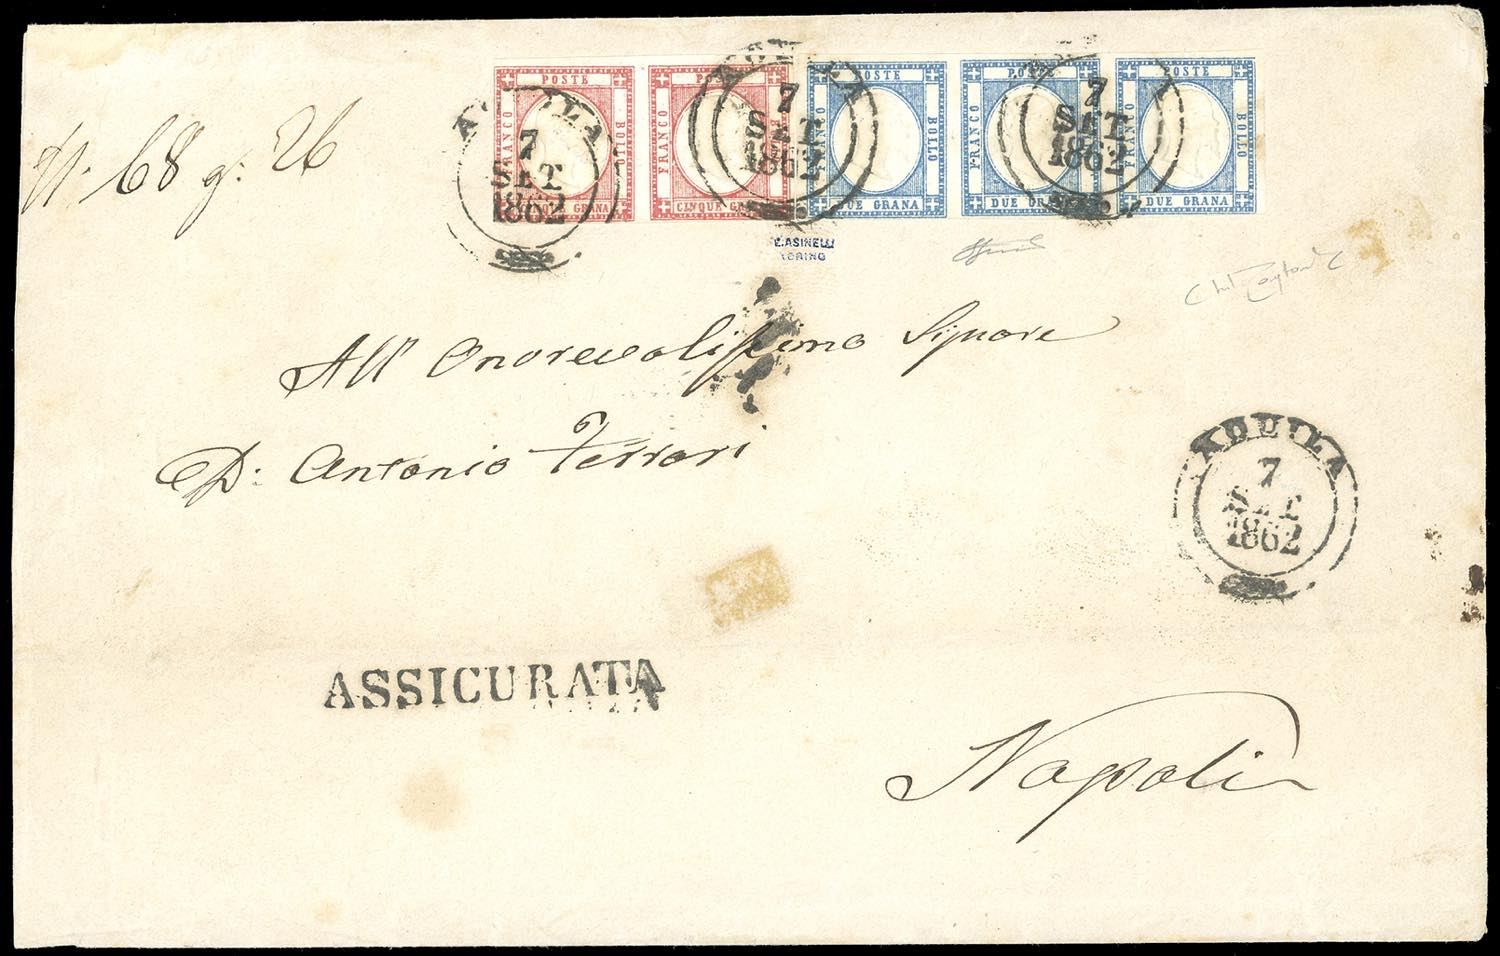 N. 68 g: 26
POSTE POSTE POSTE POSTE POSTE
FRANCO BOLLO FRANCO BOLLO FRANCO BOLLO FRANCO BOLLO FRANCO BOLLO
CINQUE GRANA CINQUE GRANA DUE GRANA DUE GRANA DUE GRANA
AQUILA
7
SET
1862
AQUILA
7
SET
1862
AQUILA
7
SET
1862
E.ASINELLI
TORINO
All' Onorevolissimo Signore
D: Antonio Ferrari
AQUILA
7
SET
1862
ASSICURATA
Napoli